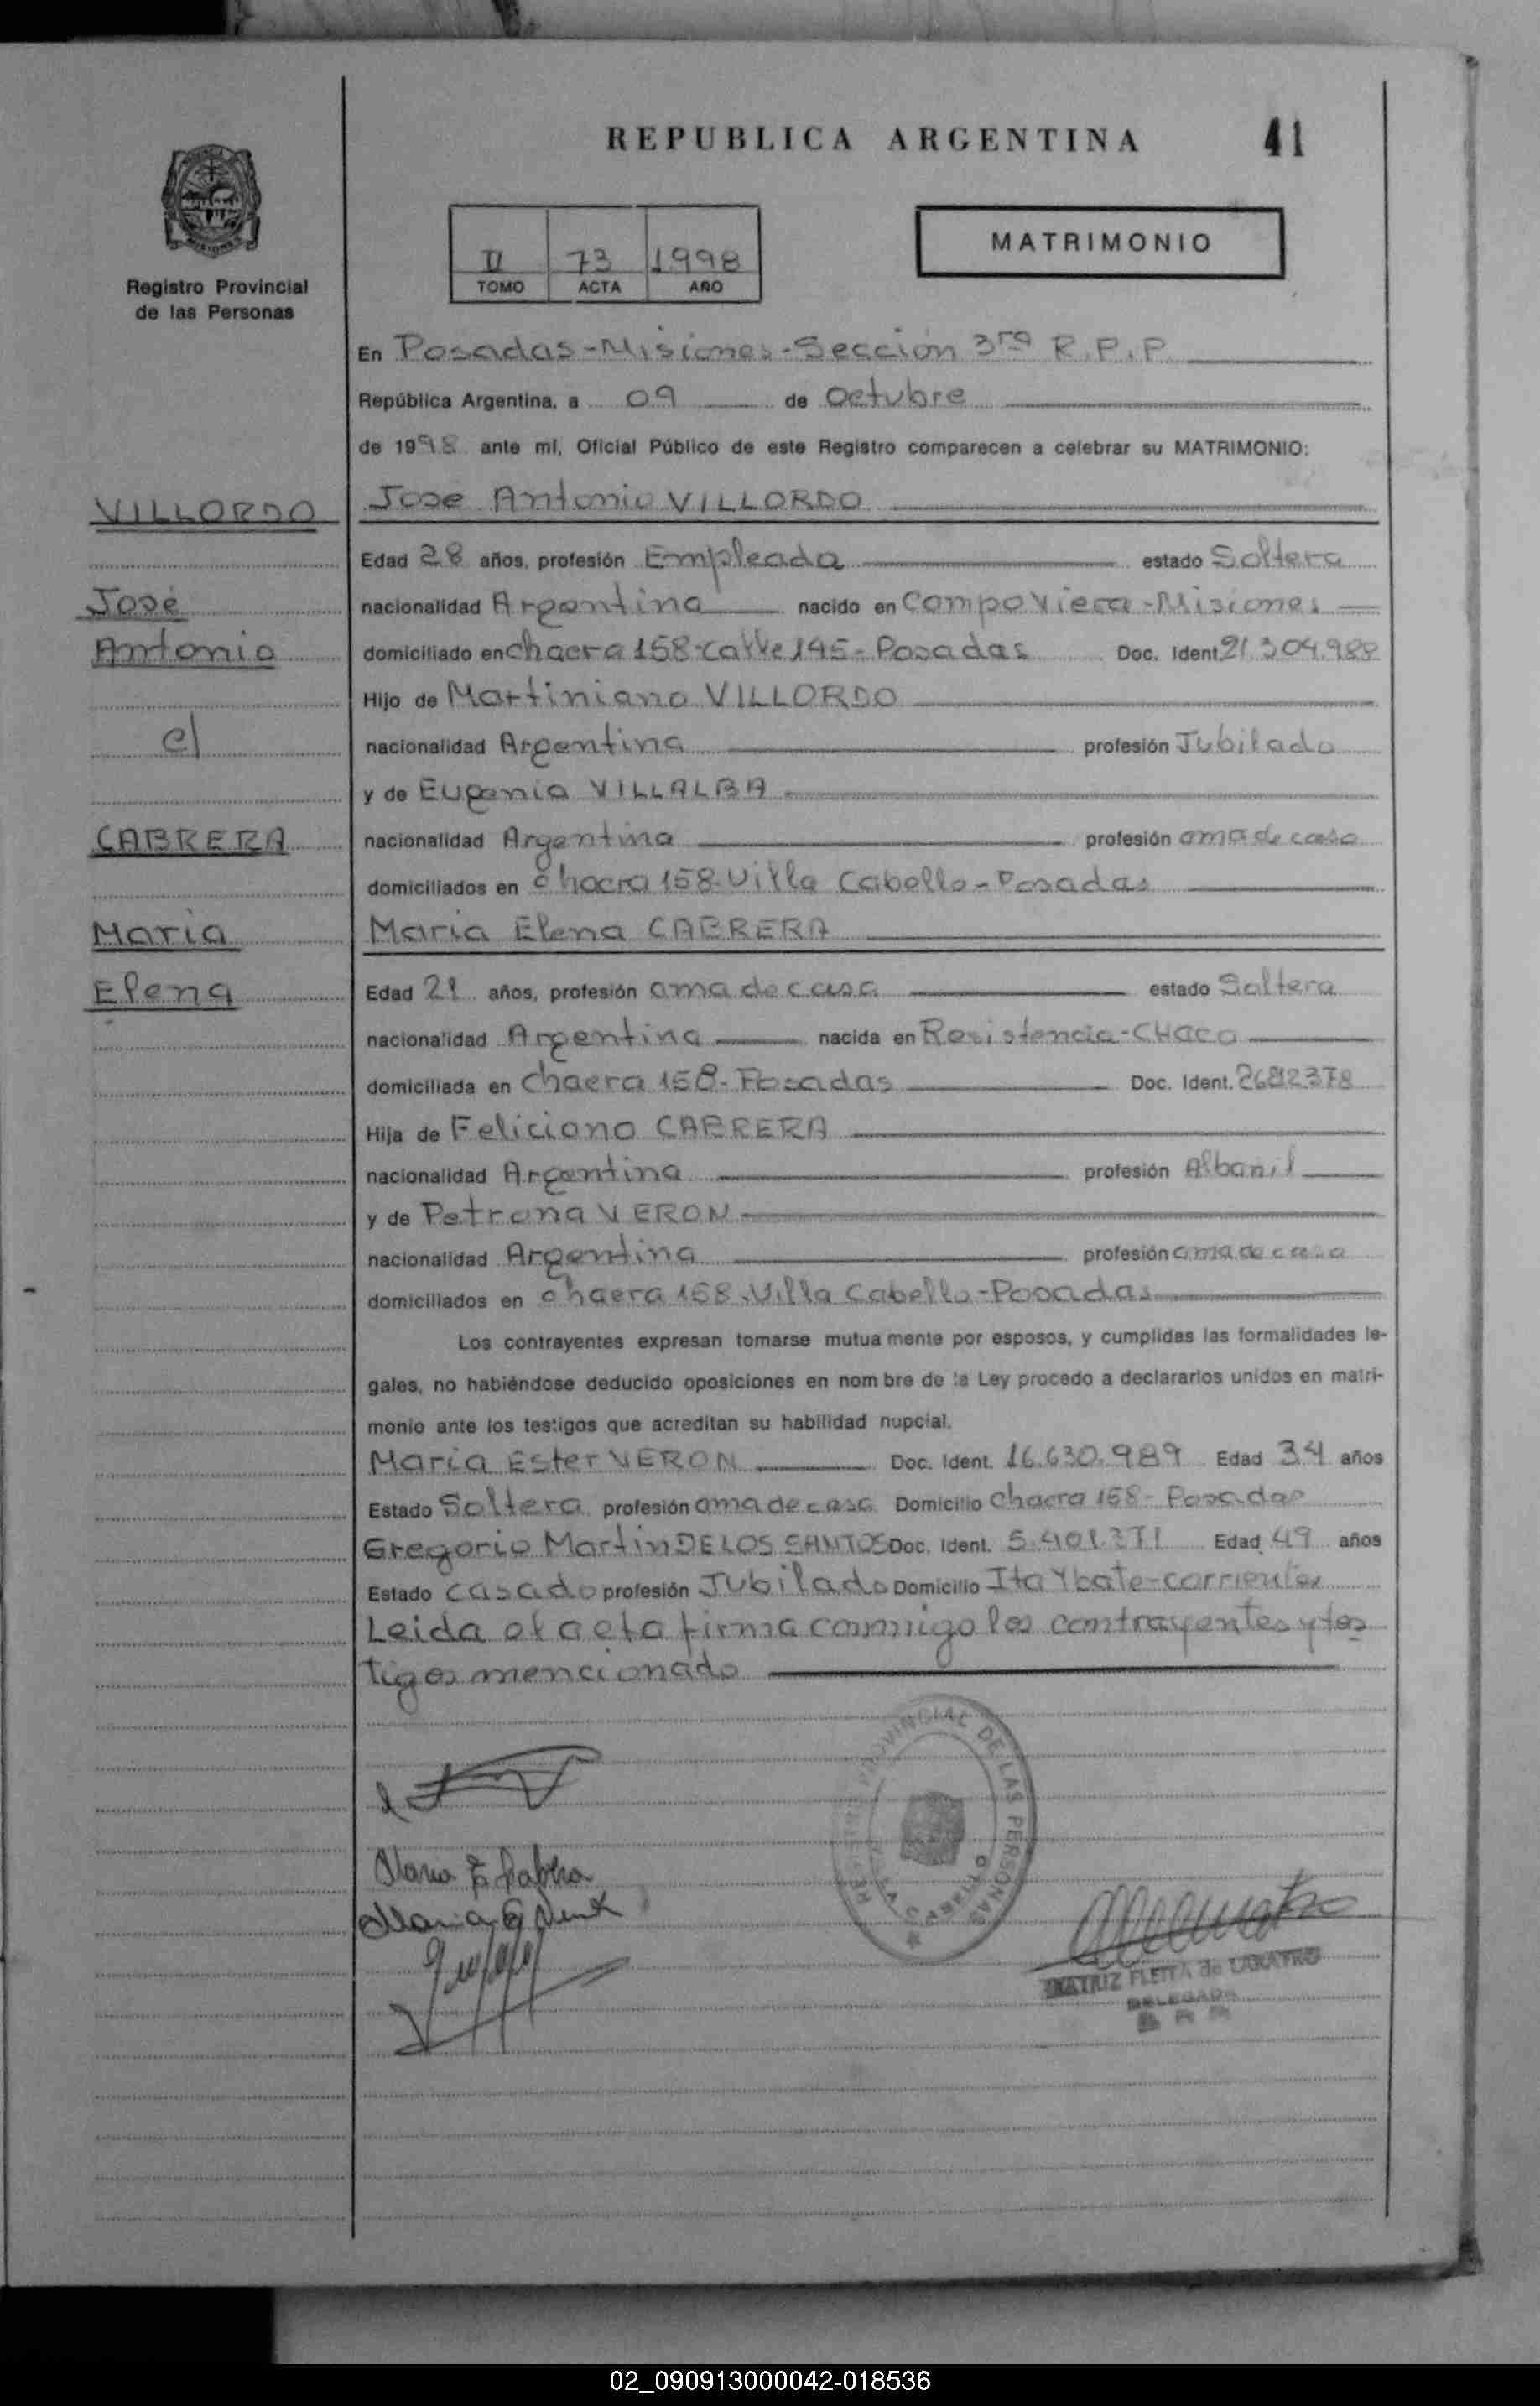 REPUBLICA ARGENTINA 41
II 73 1998
TOMO ACTA AÑO
MATRIMONIO
Registro Provincial
de las Personas
En Posadas-Misiones-Sección 3ra R.P.P
República Argentina, a 09 de Octubre
de 1998 ante mí, Oficial Público de este Registro comparecen a celebrar su MATRIMONIO:
VILLORDO
José
Antonio
c/
CABRERA
Maria
Elena
Jose Antonio VILLORDO
Edad 28 años, profesión Empleada estado Soltera
nacionalidad Argentina nacido en Campo Viera-Misiones
domiciliado en chacra 158-calle 145-Posadas Doc. Ident. 21.304.988
Hijo de Martiniano VILLORDO
nacionalidad Argentina profesión Jubilado
y de Eugenia VILLALBA
nacionalidad Argentina profesión ama de casa
domiciliados en chacra 158-Villa Cabello-Posadas
Maria Elena CABRERA
Edad 21 años, profesión ama de casa estado Soltera
nacionalidad Argentina nacida en Resistencia-CHaco
domiciliada en chacra 158-Posadas Doc. Ident.
Hija de Feliciano CABRERA
nacionalidad Argentina profesión Albañil
y de Petrona VERON
nacionalidad Argentina profesión ama de casa
domiciliados en chacra 158-Villa Cabello-Posadas
Los contrayentes expresan tomarse mutua mente por esposos, y cumplidas las formalidades le-
gales, no habiéndose deducido oposiciones en nom bre de la Ley procedo a declararlos unidos en matri-
monio ante los testigos que acreditan su habilidad nupcial.
Maria Ester VERON Doc. Ident. 16.630.989 Edad 34 años
Estado Soltera profesión ama de casa Domicilio chacra 158-Posadas
Gregorio Martin DE LOS SANTOS Doc. Ident. 5.401.371 Edad 49 años
Estado casado profesión Jubilado Domicilio Ita Ybate-corrientes
Leida el acta firma conmigo los contrayentes y tes
tigos mencionado
PROVINCIAL DE LAS PERSONAS
Maria E Cabrera
BEATRIZ FLEITA de LARATRO
DELEGADA
02_090913000042-018536